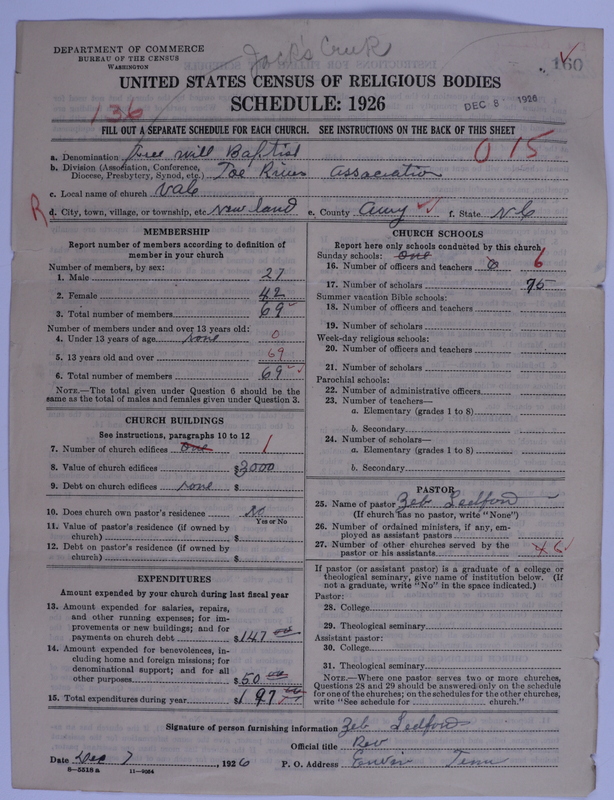 DEPARTMENT OF COMMERCE
BUREAU OF THE CENSUS
WASHINGTON
160
UNITED STATES CENSUS OF RELIGIOUS BODIES
SCHEDULE: 1926
DEC 8 1926
136
FILL OUT A SEPARATE SCHEDULE FOR EACH CHURCH. SEE INSTRUCTIONS ON THE BACK OF THIS SHEET
015
a. Denomination Free Will Baptist
b. Division (Association, Conference, Diocese, Presbytery, Synod, etc.) Toe River Association
c. Local name of church Vale
R
d. City, town, village, or township, etc. Newland e. County Avery f. State N C
MEMBERSHIP
Report number of members according to definition of member in your church
Number of members, by sex:
1. Male 27
2. Female 42
3. Total number of members 69
Number of members under and over 13 years old:
4. Under 13 years of age none 0
5. 13 years old and over 69
6. Total number of members 69
NOTE.—The total given under Question 6 should be the same as the total of males and females given under Question 3.
CHURCH BUILDINGS
See instructions, paragraphs 10 to 12
7. Number of church edifices one 1
8. Value of church edifices $3000
9. Debt on church edifices none $
10. Does church own pastor's residence No
Yes or No
11. Value of pastor's residence (if owned by church) $
12. Debt on pastor's residence (if owned by church) $
EXPENDITURES
Amount expended by your church during last fiscal year
13. Amount expended for salaries, repairs, and other running expenses; for improvements or new buildings; and for payments on church debt $147
14. Amount expended for benevolences, including home and foreign missions; for denominational support; and for all other purposes $50
15. Total expenditures during year $197
CHURCH SCHOOLS
Report here only schools conducted by this church
Sunday schools: one
16. Number of officers and teachers 6 6
17. Number of scholars 75
Summer vacation Bible schools:
18. Number of officers and teachers
19. Number of scholars
Week-day religious schools:
20. Number of officers and teachers
21. Number of scholars
Parochial schools:
22. Number of administrative officers
23. Number of teachers—
a. Elementary (grades 1 to 8)
b. Secondary
24. Number of scholars—
a. Elementary (grades 1 to 8)
b. Secondary
PASTOR
25. Name of pastor Zeb Ledford
(If church has no pastor, write "None")
26. Number of ordained ministers, if any, employed as assistant pastors
27. Number of other churches served by the pastor or his assistants
If pastor (or assistant pastor) is a graduate of a college or theological seminary, give name of institution below. (If not a graduate, write "No" in the space indicated.)
Pastor:
28. College
29. Theological seminary
Assistant pastor:
30. College
31. Theological seminary
NOTE.—Where one pastor serves two or more churches, Questions 28 and 29 should be answered only on the schedule for one of the churches; on the schedules for the other churches, write "See schedule for church."
Signature of person furnishing information Zeb Ledford
Official title Rev
Date Dec 7, 1926 P. O. Address Erwin Tenn
8—5518 a 11—9064